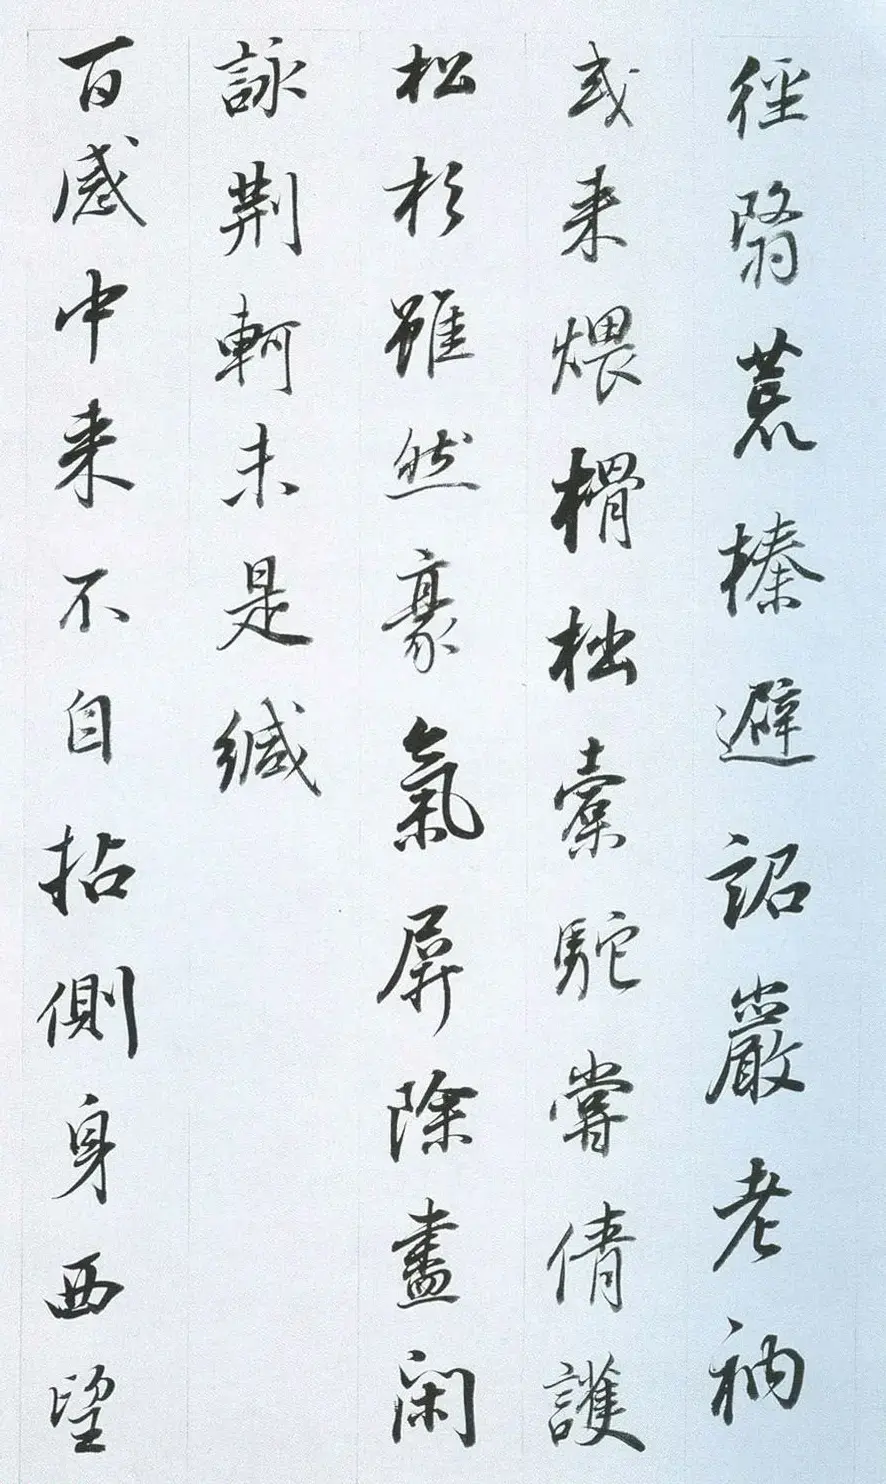 徑翳荒榛避詔嚴老衲
或来煨榾柮橐駝嘗倩護
松杉雖然豪氣屏除盡閑
詠荆軻未是緘
百感中来不自拈側身西望